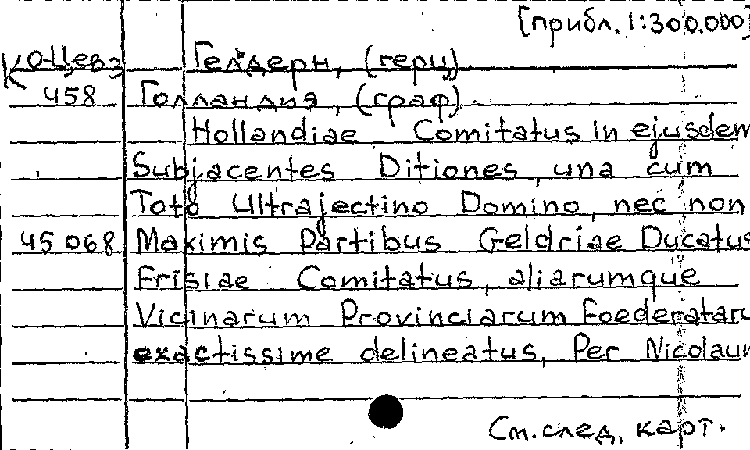 [прибл. 1:300.000]
К О-Цевз Гелдерн, (герц)
458 Голландия, (граф)
Hollandiae Comitatus in ejusdem
Subjacentes Ditiones, una cum
Toto Ultrajectino Domino, nec non
45 068 Maximis Partibus Geldriae Ducatus
Frisiae Comitatus, aliarumque
Vicinarum Provinciarum Foederataru
exactissime delineatus, Per Nicolaum
См. след. карт.